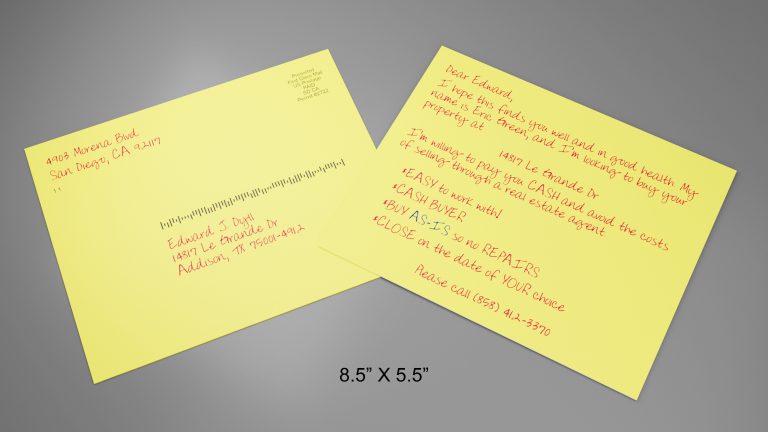 4903 Morena Blvd.
San Diego, CA 92117
Presorted
First Class Mail
US Postage
PAID
SD CA
Permit #2722
Edward J. Dyll
14817 Le Grande Dr
Addison, TX 75001-4912
Dear Edward,
I hope this finds you well and in good health. My
name is Eric Green, and I'm looking to buy your
property at
14817 Le Grande Dr
I'm willing to pay you CASH and avoid the costs
of selling through a real estate agent.
*EASY to work with!
*CASH BUYER
*BUY AS-IS so no REPAIRS
*CLOSE on the date of YOUR choice
Please call (858) 412-3370
8.5” X 5.5”